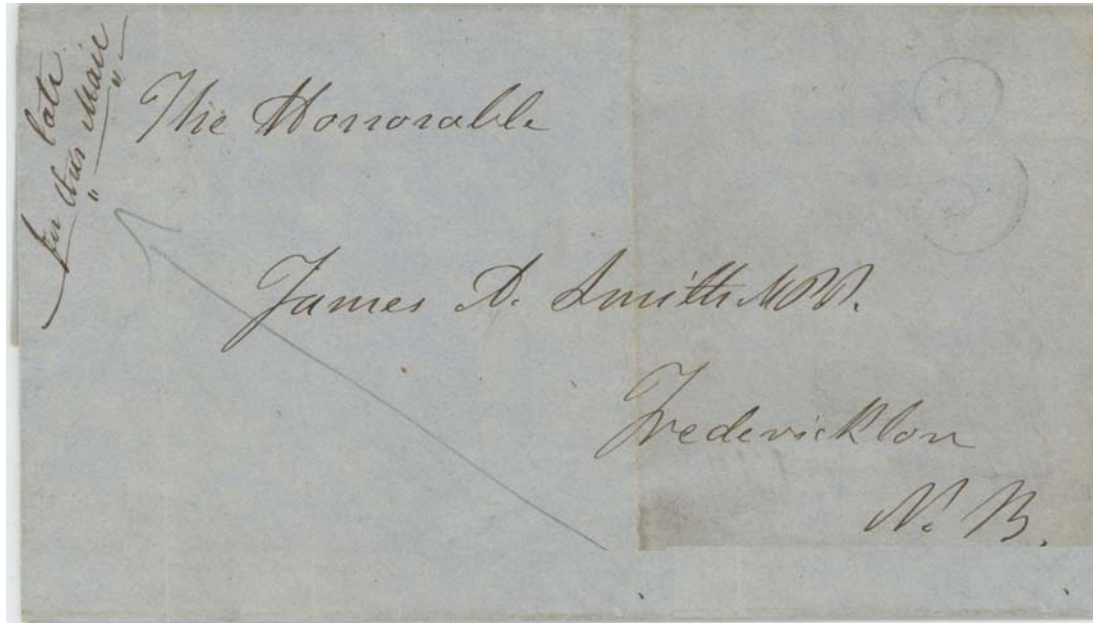 late
for this Mail
The Honorable
James A. Smith M.P.P.
Fredericklon
N. B.
3